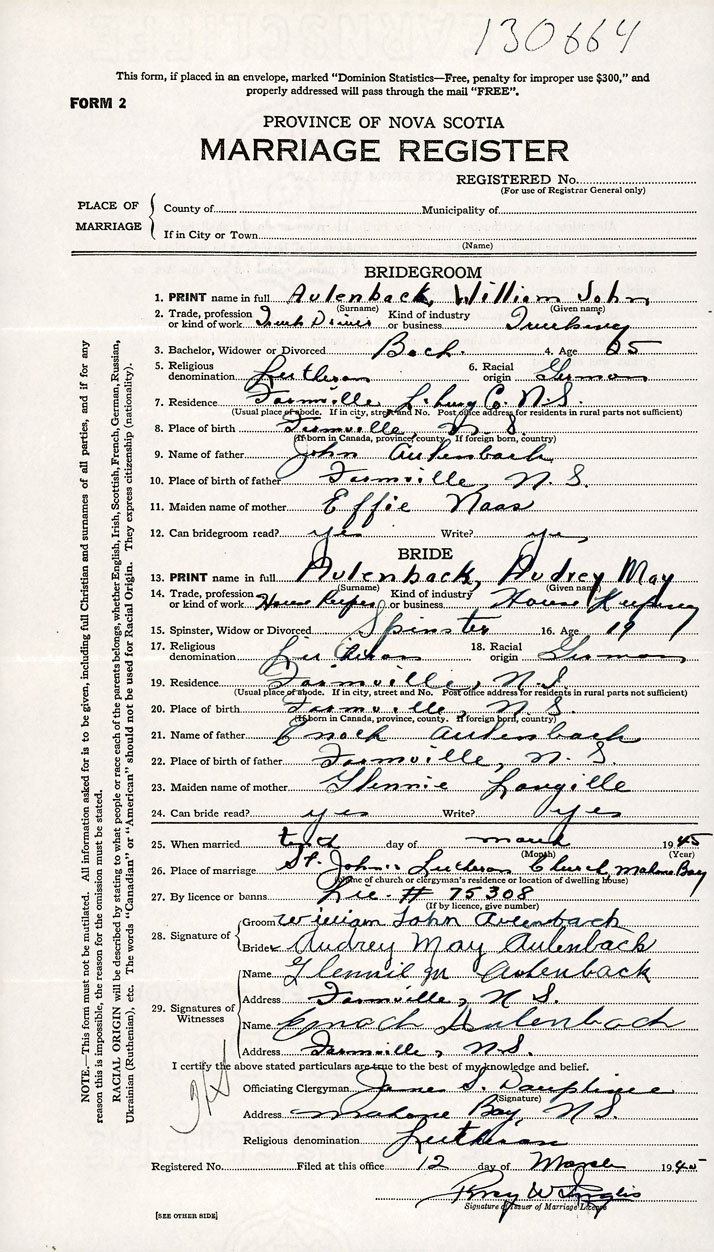 130664
This form, if placed in an envelope, marked "Dominion Statistics—Free, penalty for improper use $300," and
properly addressed will pass through the mail "FREE".
FORM 2
PROVINCE OF NOVA SCOTIA
MARRIAGE REGISTER
REGISTERED No.
(For use of Registrar General only)
PLACE OF MARRIAGE
County of Municipality of
If in City or Town
(Name)
BRIDEGROOM
1. PRINT name in full Aulenback, William John
(Surname) (Given name)
2. Trade, profession or kind of work Truck Driver Kind of industry or business Trucking
3. Bachelor, Widower or Divorced Bach. 4. Age 25
5. Religious denomination Lutheran 6. Racial origin German
7. Residence Farmville L'burg Co. N.S.
(Usual place of abode. If in city, street and No. Post office address for residents in rural parts not sufficient)
8. Place of birth Farmville, N.S.
(If born in Canada, province, county. If foreign born, country)
9. Name of father John Aulenback
10. Place of birth of father Farmville, N.S.
11. Maiden name of mother Effie Naas
12. Can bridegroom read? yes Write? yes
BRIDE
13. PRINT name in full Aulenback, Audrey May
(Surname) (Given name)
14. Trade, profession or kind of work House Keeper Kind of industry or business House Keeping
15. Spinster, Widow or Divorced Spinster 16. Age 19
17. Religious denomination Lutheran 18. Racial origin German
19. Residence Farmville, N.S.
(Usual place of abode. If in city, street and No. Post office address for residents in rural parts not sufficient)
20. Place of birth Farmville, N.S.
(If born in Canada, province, county. If foreign born, country)
21. Name of father Enoch Aulenbach
22. Place of birth of father Farmville, N.S.
23. Maiden name of mother Glennie Langille
24. Can bride read? yes Write? yes
25. When married tenth day of March 1945
(Month) (Year)
26. Place of marriage St. John's Lutheran Church, Mahone Bay
(Name of church or clergyman's residence or location of dwelling house)
27. By licence or banns Lic. # 75308
(If by licence, give number)
28. Signature of Groom William John Aulenbach
Bride Audrey May Aulenbach
29. Signatures of Witnesses
Name Glennie M Aulenback
Address Farmville, N.S.
Name Enoch Aulenbach
Address Farmville, N.S.
I certify the above stated particulars are true to the best of my knowledge and belief.
Officiating Clergyman James S. Dauphinee
(Signature)
Address Mahone Bay, N.S.
Religious denomination Lutheran
Registered No. Filed at this office 12 day of March 1945
Percy W Inglis
Signature of Issuer of Marriage Licence
[SEE OTHER SIDE]
NOTE.—This form must not be mutilated. All information asked for is to be given, including full Christian and surnames of all parties, and if for any
reason this is impossible, the reason for the omission must be stated.
RACIAL ORIGIN will be described by stating to what people or race each of the parents belongs, whether English, Irish, Scottish, French, German, Russian,
Ukrainian (Ruthenian), etc. The words "Canadian" or "American" should not be used for Racial Origin. They express citizenship (nationality).